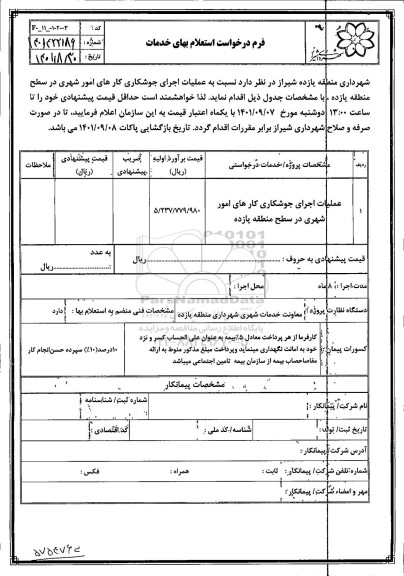 فرم درخواست استعلام بهای خدمات
کد :
شماره :
تاریخ :
شهرداری منطقه یازده شیراز در نظر دارد نسبت به عملیات اجرای جوشکاری کار های امور شهری در سطح
منطقه یازده ، با مشخصات جدول ذیل اقدام نماید. لذا خواهشمند است حداقل قیمت پیشنهادی خود را تا
ساعت ۱۳:۰۰ دوشنبه مورخ ۱۴۰۱/۰۹/۰۷ با یکماه اعتبار قیمت به این سازمان اعلام فرمایید، تا در صورت
صرفه و صلاح شهرداری شیراز برابر مقررات اقدام گردد. تاریخ بازگشایی پاکات ۱۴۰۱/۰۹/۰۸ می باشد.
ردیف
مشخصات پروژه/خدمات درخواستی
قیمت برآورد اولیه (ریال)
ضریب پیشنهادی
قیمت پیشنهادی (ریال)
ملاحظات
۱
عملیات اجرای جوشکاری کار های امور
شهری در سطح منطقه یازده
۵/۲۳۷/۷۷۹/۹۸۰
قیمت پیشنهادی به حروف : ریال
به عدد
ریال
مدت اجرا : ۸ ماه
محل اجرا :
دستگاه نظارت پروژه : معاونت خدمات شهری شهرداری منطقه یازده
مشخصات فنی منضم به استعلام بها : دارد
کسورات پیمان :
کارفرما از هر پرداخت معادل ۵٪ بیمه به عنوان علی الحساب کسر و نزد
خود به امانت نگهداری مینماید وپرداخت مبلغ مذکور منوط به ارائه
مفاصاحساب بیمه از سازمان بیمه تامین اجتماعی میباشد
۱۰درصد(۱۰٪) سپرده حسن انجام کار
مشخصات پیمانکار
نام شرکت/ پیمانکار :
شماره ثبت/ شناسنامه
تاریخ ثبت/ تولد :
شناسه/کد ملی :
کد اقتصادی :
آدرس شرکت/ پیمانکار :
شماره تلفن شرکت/ پیمانکار : ثابت : همراه : فکس :
مهر و امضاء شرکت/ پیمانکار :